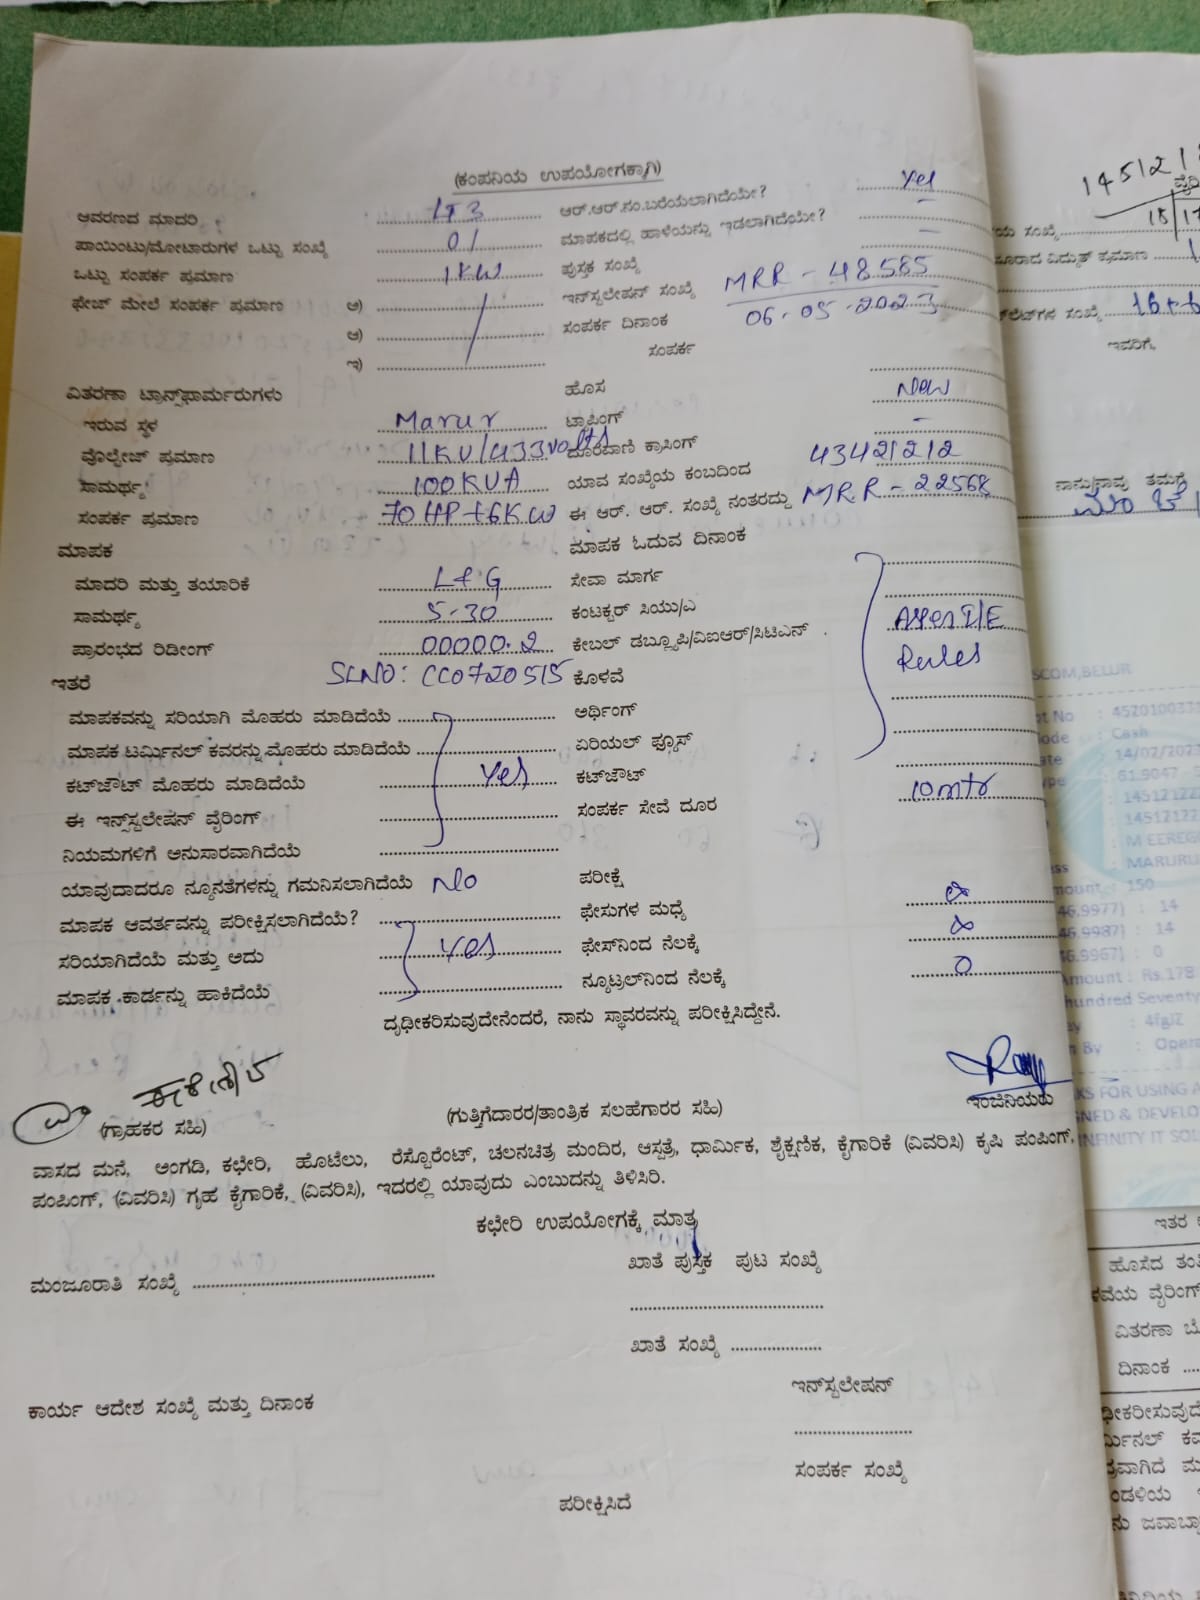 (ಕಂಪನಿಯ ಉಪಯೋಗಕ್ಕಾಗಿ)
ಆವರಣದ ಮಾದರಿ LT3 ಆರ್.ಆರ್.ನಂ.ಬರೆಯಲಾಗಿದೆಯೇ? Yes
ಪಾಯಿಂಟು/ಮೋಟಾರುಗಳ ಒಟ್ಟು ಸಂಖ್ಯೆ 01 ಮಾಪಕದಲ್ಲಿ ಹಾಳೆಯನ್ನು ಇಡಲಾಗಿದೆಯೇ? –
ಒಟ್ಟು ಸಂಪರ್ಕ ಪ್ರಮಾಣ 1KW ಪುಸ್ತಕ ಸಂಖ್ಯೆ –
ಫೇಜ್ ಮೇಲೆ ಸಂಪರ್ಕ ಪ್ರಮಾಣ ಅ) ಇನ್‌ಸ್ಟಲೇಷನ್ ಸಂಖ್ಯೆ MRR - 48585
ಆ) ಸಂಪರ್ಕ ದಿನಾಂಕ 06-05-2023
ಇ) ಸಂಪರ್ಕ
ವಿತರಣಾ ಟ್ರಾನ್ಸ್‌ಫಾರ್ಮರುಗಳು ಹೊಸ New
ಇರುವ ಸ್ಥಳ Marur ಟ್ಯಾಪಿಂಗ್ –
ವೊಲ್ಟೇಜ್ ಪ್ರಮಾಣ 11KV/433volts ದೂರವಾಣಿ ಕ್ರಾಸಿಂಗ್
ಸಾಮರ್ಥ್ಯ 100KVA ಯಾವ ಸಂಖ್ಯೆಯ ಕಂಬದಿಂದ 43421212
ಸಂಪರ್ಕ ಪ್ರಮಾಣ 70HP+6KW ಈ ಆರ್. ಆರ್. ಸಂಖ್ಯೆ ನಂತರದ್ದು MRR - 22568
ಮಾಪಕ ಮಾಪಕ ಓದುವ ದಿನಾಂಕ
ಮಾದರಿ ಮತ್ತು ತಯಾರಿಕೆ L&G ಸೇವಾ ಮಾರ್ಗ
ಸಾಮರ್ಥ್ಯ 5-30 ಕಂಟಕ್ಟರ್ ಸಿಯು/ಎ
ಪ್ರಾರಂಭದ ರಿಡೀಂಗ್ 00000.2 ಕೇಬಲ್ ಡಬ್ಲ್ಯೂಪಿ/ವಿಐಆರ್/ಸಿಟಿಎಸ್ As per I/E
ಇತರೆ SLNO: CC0720515 ಕೊಳವೆ Rules
ಮಾಪಕವನ್ನು ಸರಿಯಾಗಿ ಮೊಹರು ಮಾಡಿದೆಯೆ ಅರ್ಥಿಂಗ್
ಮಾಪಕ ಟರ್ಮಿನಲ್ ಕವರನ್ನು ಮೊಹರು ಮಾಡಿದೆಯೆ ಏರಿಯಲ್ ಫ್ಯೂಸ್
ಕಟ್‌ಔಟ್ ಮೊಹರು ಮಾಡಿದೆಯೆ Yes ಕಟ್‌ಔಟ್
ಈ ಇನ್‌ಸ್ಟಲೇಷನ್ ವೈರಿಂಗ್ ಸಂಪರ್ಕ ಸೇವೆ ದೂರ 10mtr
ನಿಯಮಗಳಿಗೆ ಅನುಸಾರವಾಗಿದೆಯೆ
ಯಾವುದಾದರೂ ನ್ಯೂನತೆಗಳನ್ನು ಗಮನಿಸಲಾಗಿದೆಯೆ No ಪರೀಕ್ಷೆ
ಮಾಪಕ ಆವರ್ತವನ್ನು ಪರೀಕ್ಷಿಸಲಾಗಿದೆಯೆ? ಫೇಸುಗಳ ಮಧ್ಯೆ ∞
ಸರಿಯಾಗಿದೆಯೆ ಮತ್ತು ಅದು Yes ಫೇಸ್‌ನಿಂದ ನೆಲಕ್ಕೆ ∞
ಮಾಪಕ ಕಾರ್ಡನ್ನು ಹಾಕಿದೆಯೆ ನ್ಯೂಟ್ರಲ್‌ನಿಂದ ನೆಲಕ್ಕೆ 0
ದೃಢೀಕರಿಸುವುದೇನೆಂದರೆ, ನಾನು ಸ್ಥಾವರವನ್ನು ಪರೀಕ್ಷಿಸಿದ್ದೇನೆ.
(ಗ್ರಾಹಕರ ಸಹಿ) (ಗುತ್ತಿಗೆದಾರರ/ತಾಂತ್ರಿಕ ಸಲಹೆಗಾರರ ಸಹಿ) ಇಂಜಿನಿಯರು
ವಾಸದ ಮನೆ, ಅಂಗಡಿ, ಕಛೇರಿ, ಹೊಟೆಲು, ರೆಸ್ಟೊರೆಂಟ್, ಚಲನಚಿತ್ರ ಮಂದಿರ, ಆಸ್ಪತ್ರೆ, ಧಾರ್ಮಿಕ, ಶೈಕ್ಷಣಿಕ, ಕೈಗಾರಿಕೆ (ವಿವರಿಸಿ) ಕೃಷಿ ಪಂಪಿಂಗ್,
ಪಂಪಿಂಗ್, (ವಿವರಿಸಿ) ಗೃಹ ಕೈಗಾರಿಕೆ, (ವಿವರಿಸಿ), ಇದರಲ್ಲಿ ಯಾವುದು ಎಂಬುದನ್ನು ತಿಳಿಸಿರಿ.
ಕಛೇರಿ ಉಪಯೋಗಕ್ಕೆ ಮಾತ್ರ
ಮಂಜೂರಾತಿ ಸಂಖ್ಯೆ ಖಾತೆ ಪುಸ್ತಕ ಪುಟ ಸಂಖ್ಯೆ
ಖಾತೆ ಸಂಖ್ಯೆ
ಇನ್‌ಸ್ಟಲೇಷನ್
ಕಾರ್ಯ ಆದೇಶ ಸಂಖ್ಯೆ ಮತ್ತು ದಿನಾಂಕ
ಸಂಪರ್ಕ ಸಂಖ್ಯೆ
ಪರೀಕ್ಷಿಸಿದೆ
ಇವರಿಗೆ,
ನಾನು/ನಾವು ತಮಗೆ
SCOM,BELUR
: Cash
: 14/02/2023
: 14512122
: 14512122
: MARURU
mount : 150
46.9977) : 14
46.9987) : 14
46.9967) : 0
Amount : Rs.178
hundred Seventy
By : Opera
KS FOR USING A
NED & DEVELO
INFINITY IT SOL
ಇತರ
ಹೊಸೆದ ತಂತಿ
ದಿನಾಂಕ